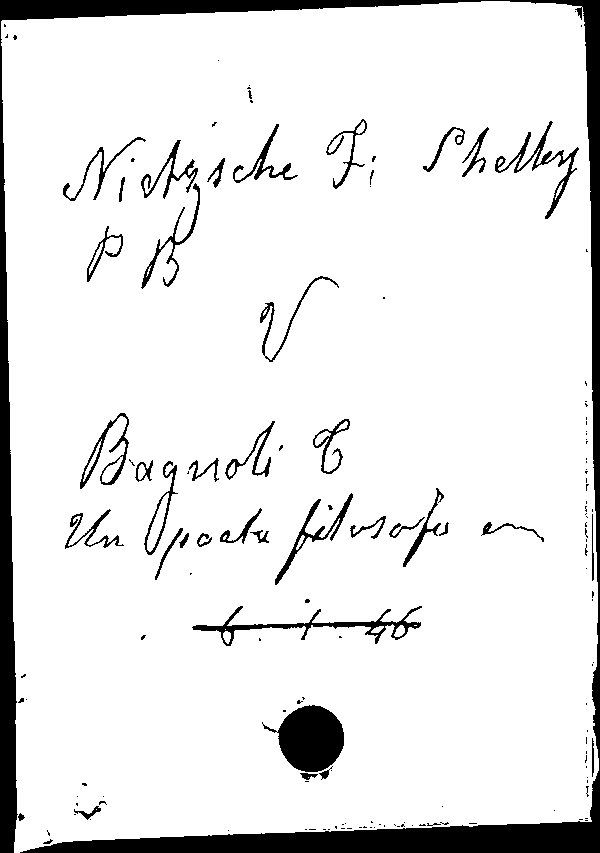 Nietzsche F; Shelley
P B
V
Bagnoli C
Un poeta filosofo
6. 1. 46